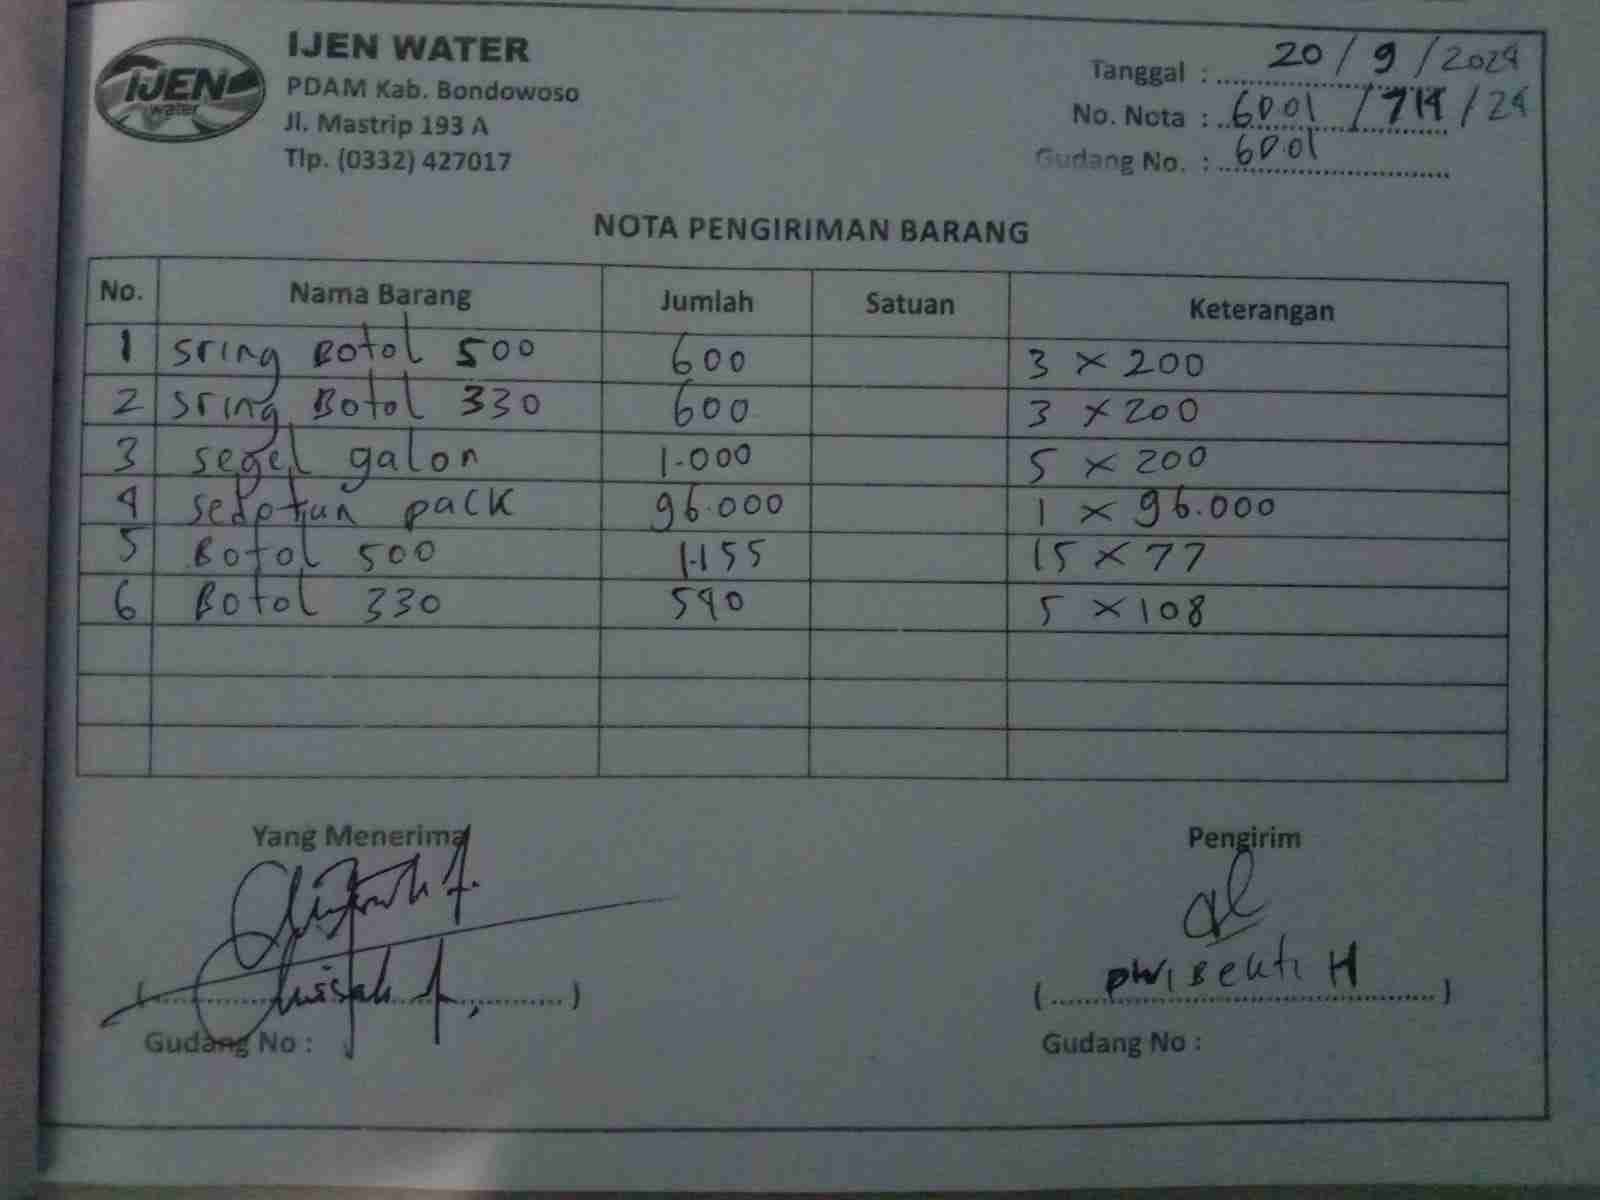 IJEN
water
IJEN WATER
PDAM Kab. Bondowoso
Jl. Mastrip 193 A
Tlp. (0332) 427017
Tanggal : 20 / 9 / 2024
No. Nota : 6001 / 714 / 24
Gudang No. : 6001
NOTA PENGIRIMAN BARANG
No. Nama Barang Jumlah Satuan Keterangan
1 sring Botol 500 600 3 x 200
2 sring Botol 330 600 3 x 200
3 segel galon 1.000 5 x 200
4 sedotan pack 96.000 1 x 96.000
5 Botol 500 1.155 15 x 77
6 Botol 330 540 5 x 108
Yang Menerima Pengirim
(....................) ( Dwi Bekti H )
Gudang No : Gudang No :